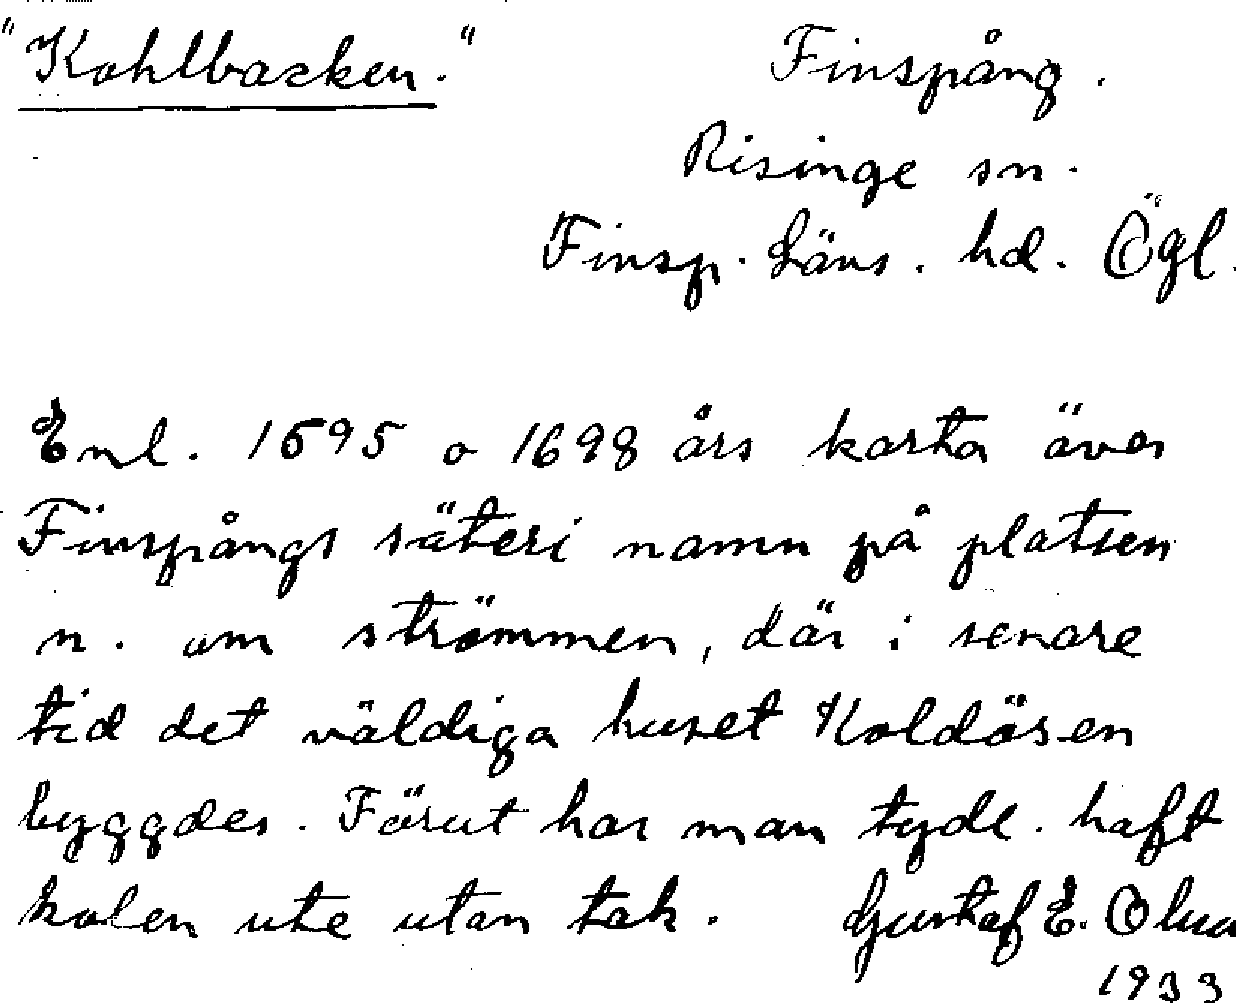 "Kohlbacken."
Finspång.
Risinge sn.
Finsp. Läns. hd. Ögl.
Enl. 1695 o 1698 års karta över
Finspångs säteri namn på platsen
n. om strömmen, där i senare
tid det väldiga huset Koldösen
byggdes. Förut har man tydl. haft
kolen ute utan tak. Gustaf E.
1933